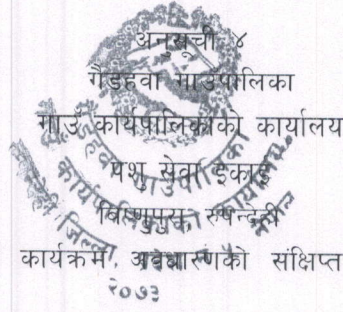 अनुसूची ४
गैडहवा गाउँपालिका
गाउँ कार्यपालिकाको कार्यालय
पशु सेवा ईकाई
विष्णुपुरा, रुपन्देही
कार्यक्रम अवधारणको संक्षिप्त
२०७३